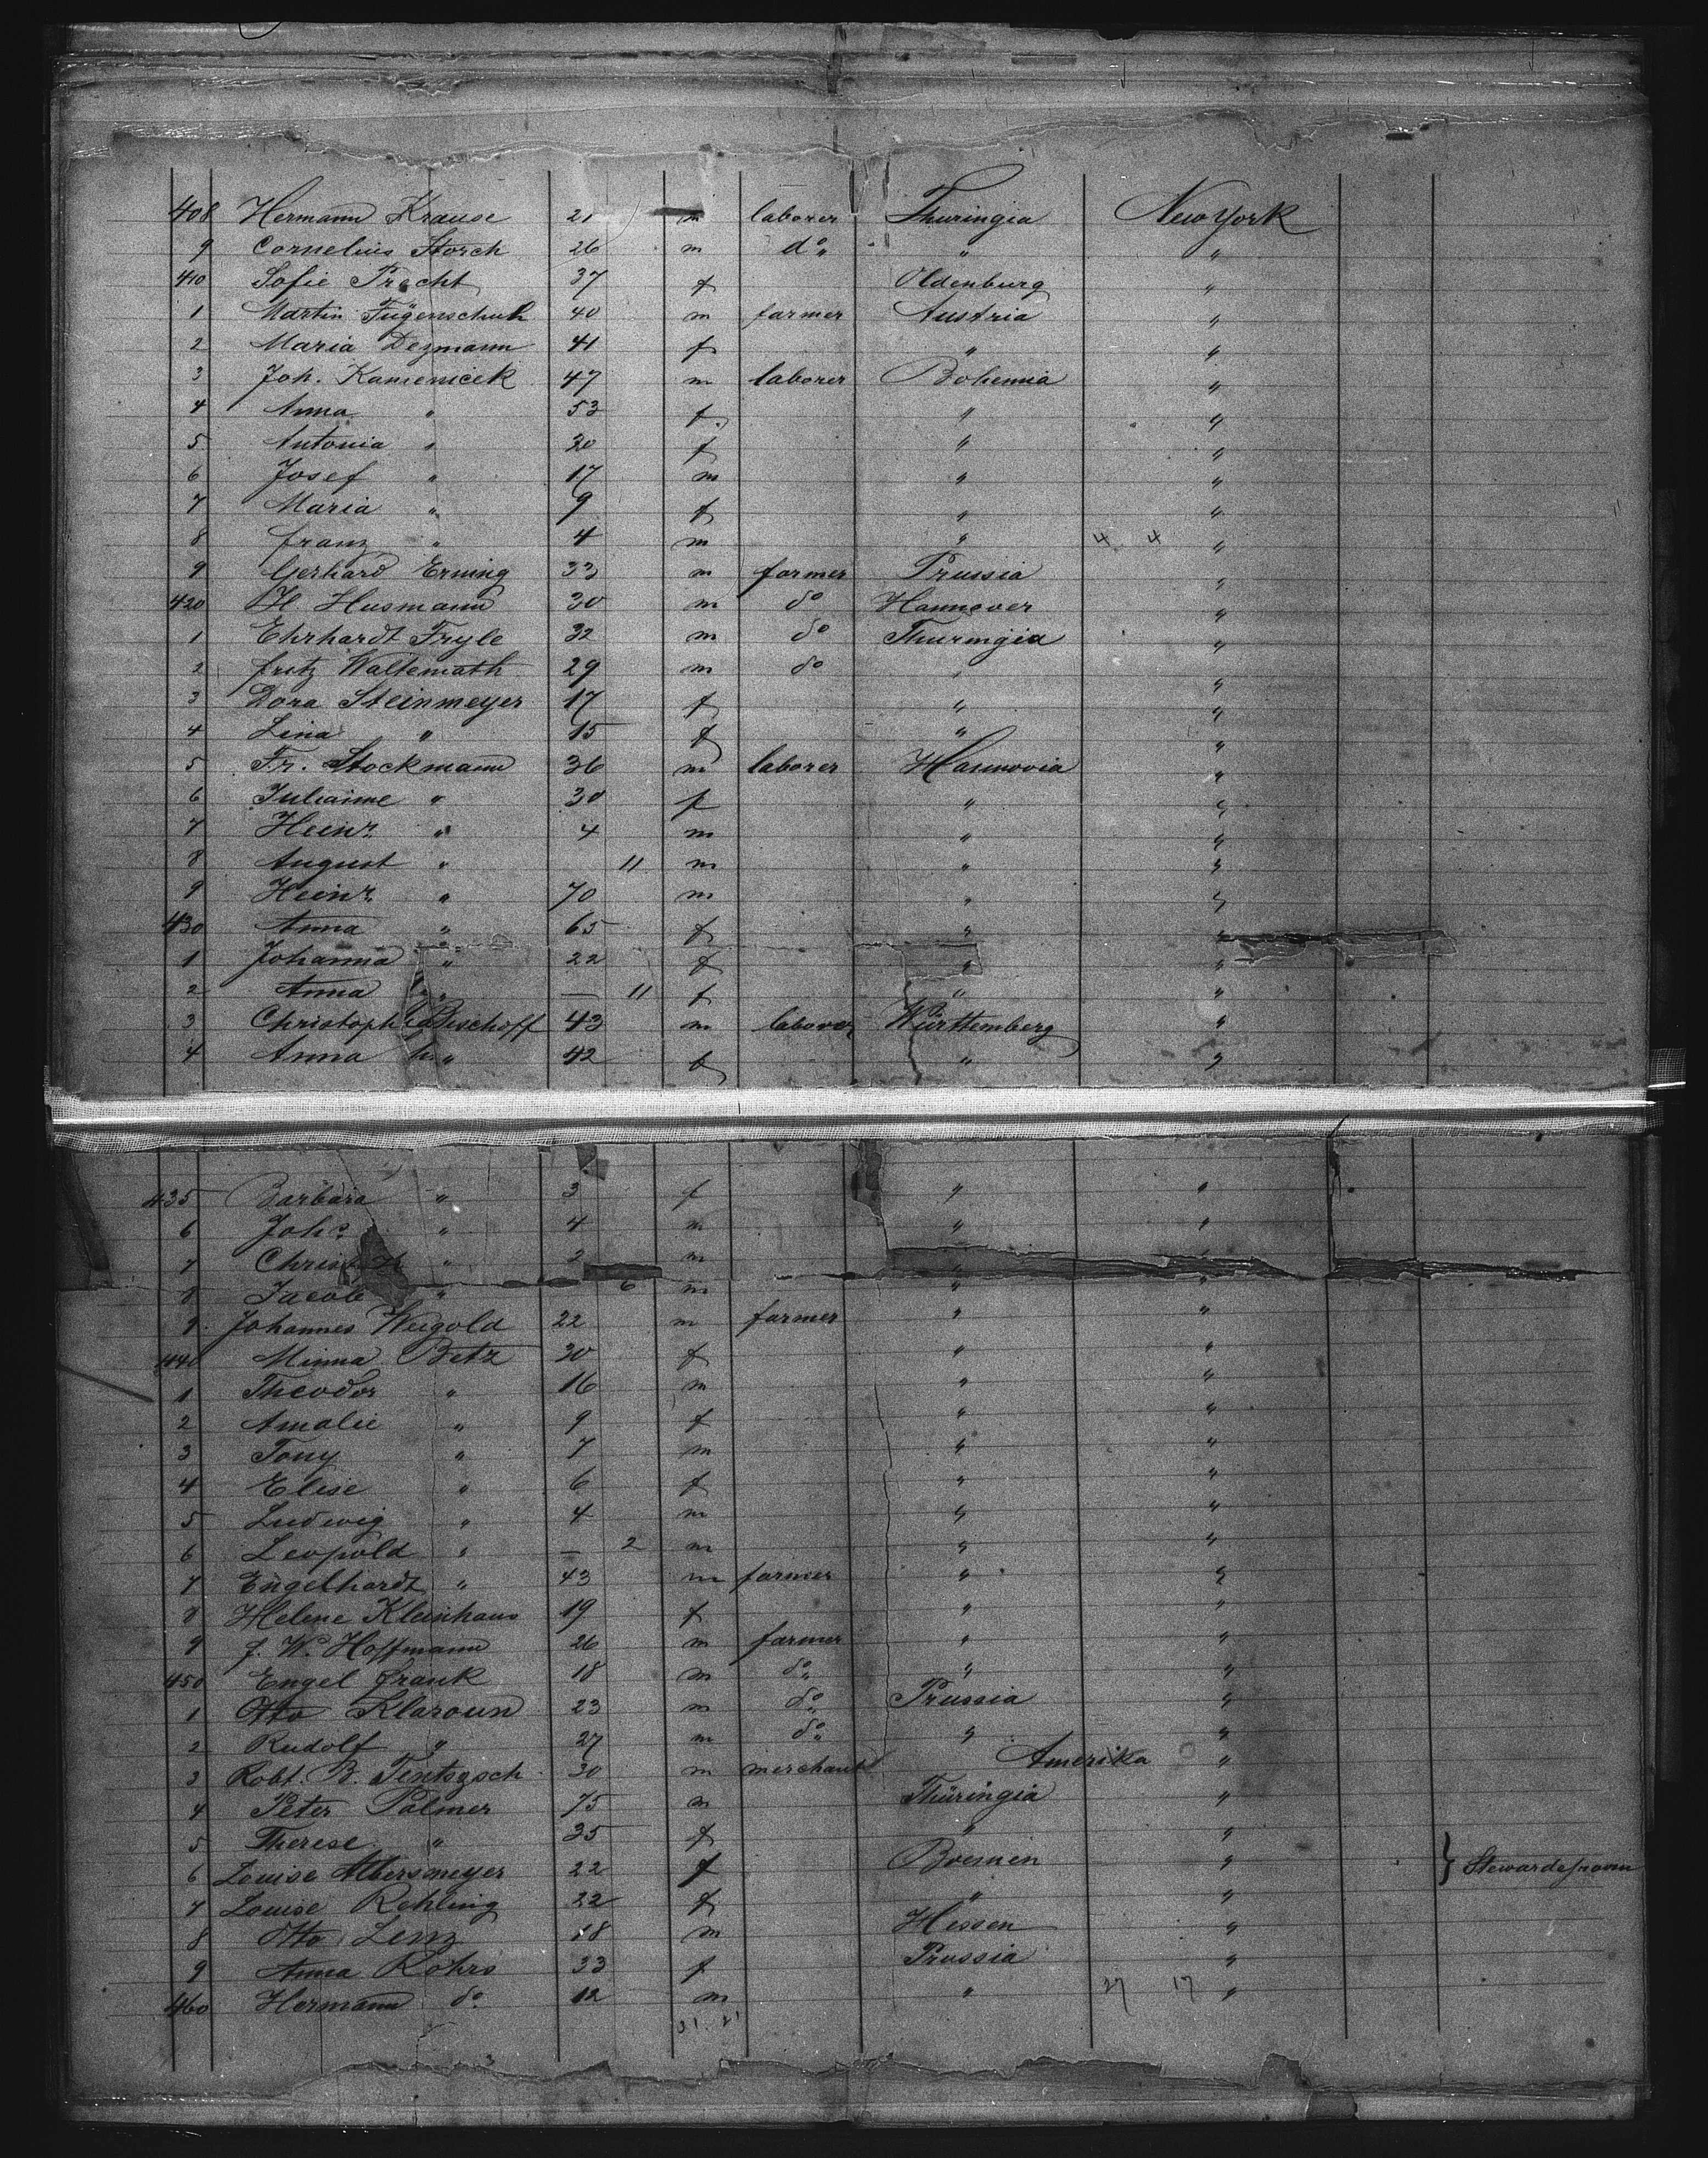 408 Hermann Krause 21 m laborer Thuringia New York
9 Cornelius Storch 26 m do " "
410 Sofie Precht 37 f Oldenburg "
1 Martin Fügenschuh 40 m farmer Austria "
2 Maria Dezmann 41 f " "
3 Joh. Kamenicek 47 m laborer Bohemia "
4 Anna " 53 f " "
5 Antonia " 20 f " "
6 Josef " 17 m " "
7 Maria " 9 f " "
8 Franz " 4 m " 4 4 "
9 Gerhard Erning 33 m farmer Prussia "
420 H Husmann 30 m do Hannover "
1 Ehrhardt Fryle 32 m do Thuringia "
2 Fritz Waltemath 29 m do " "
3 Dora Steinmeyer 17 f " "
4 Lina " 15 f " "
5 Fr. Stockmann 36 m laborer Hannovia "
6 Julianne " 30 f " "
7 Heinr. " 4 m " "
8 August " 11 m " "
9 Heinr. " 70 m " "
430 Anna " 65 f " "
1 Johanna " 22 f " "
2 Anna " — 11 f " "
3 Christoph Bischoff 43 m laborer Württemberg "
4 Anna " 42 f " "
435 Barbara " 3 f " "
6 Joh. " 4 m " "
7 " 2 m " "
8 Jacob " 6 m " "
9 Johannes Weigold 22 m farmer " "
440 Minna Betz 30 f " "
1 Theodor " 16 m " "
2 Amalie " 9 f " "
3 Tony " 7 m " "
4 Elise " 6 f " "
5 Ludwig " 4 m " "
6 Leopold " — 2 m " "
7 Engelhardt " 43 m farmer " "
8 Helene Kleinhans 19 f " "
9 J. W. Hoffmann 26 m farmer " "
450 Engel Frank 18 m do " "
1 Otto Klaroun 23 m do Prussia "
2 Rudolf " 27 m do " "
3 Robt. B. Tentzsch 30 m merchant Amerika "
4 Peter Palmer 75 m Thüringia "
5 Therese " 35 f " "
6 Louise Albersmeyer 22 f Bremen " }
7 Louise Rehling 22 f " "
8 Otto Lenz 18 m Hessen "
9 Anna Rohrs 33 f Prussia "
460 Hermann do 12 m " 17 "